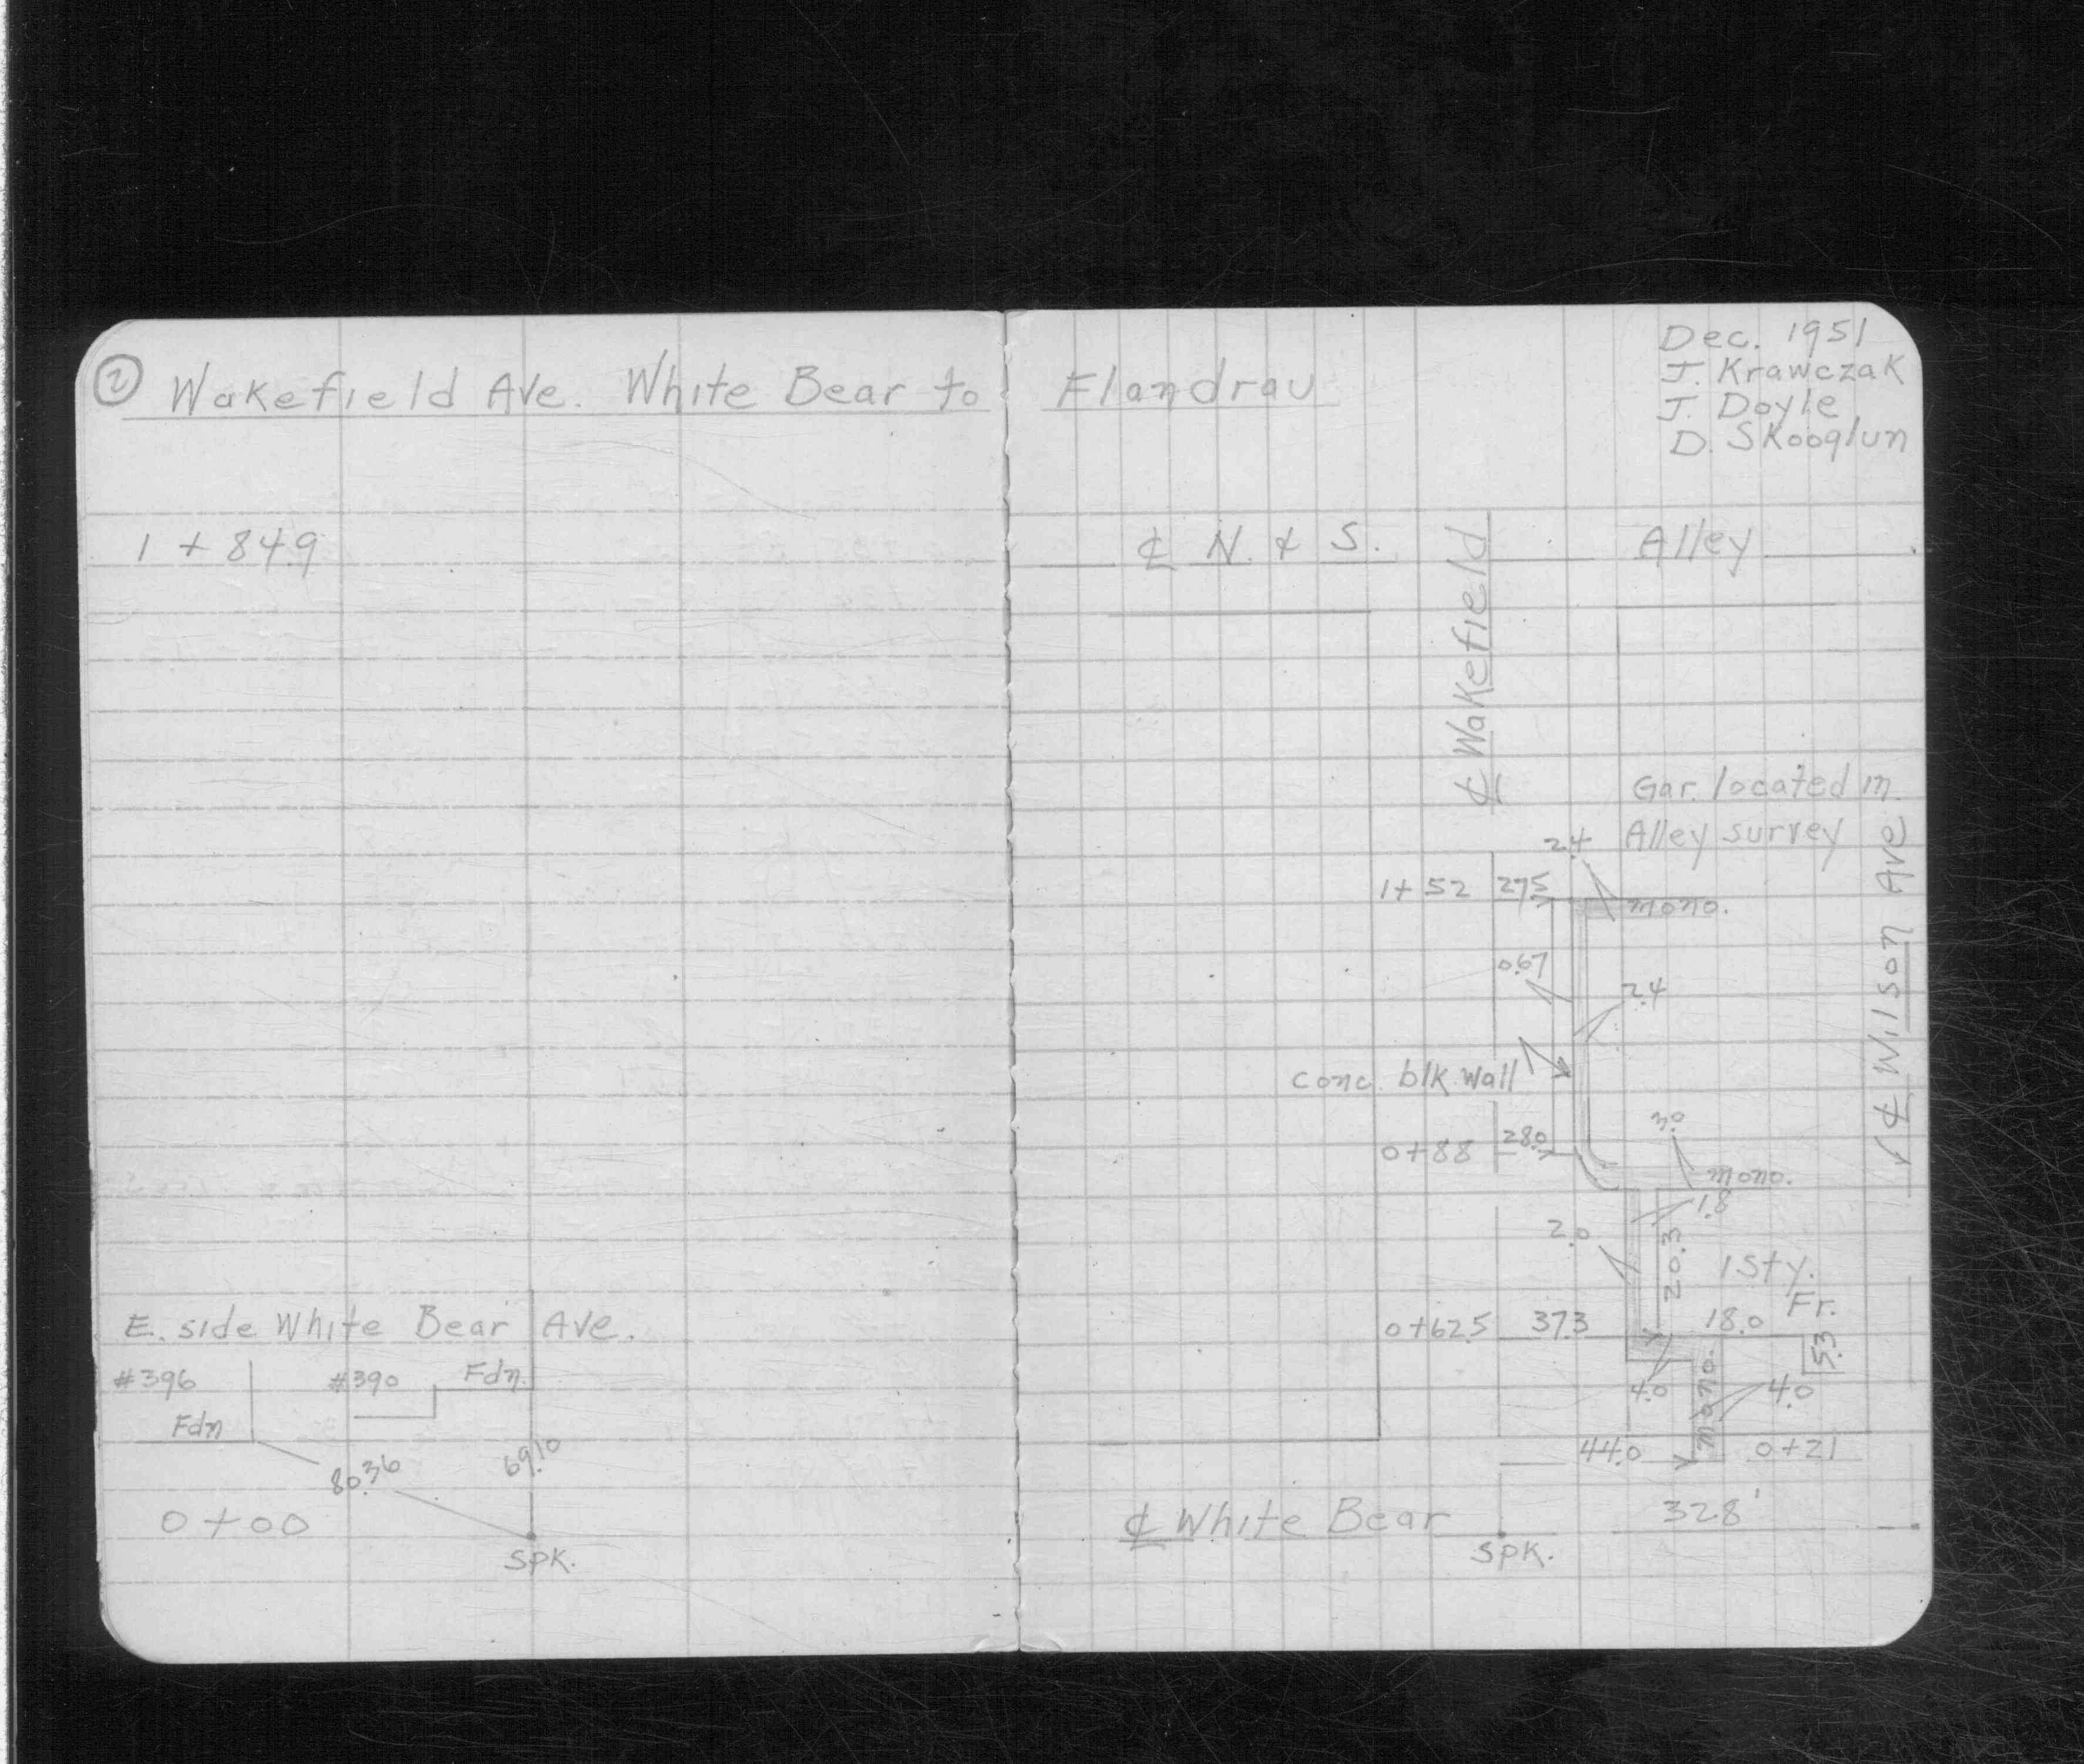 ② Wakefield Ave. White Bear to Flandrau
Dec. 1951
J. Krawczak
J. Doyle
D. Skooglun
1 + 84.9
℄ N. & S. Alley
℄ Wakefield
Gar. located in
Alley survey
2.4
1+52 27.5
mono.
0.67
2.4
℄ Wilson Ave
conc. blk. wall
3.0
0+88 28.0
mono.
1.8
2.0
20.3
1 Sty.
Fr.
0+62.5 37.3 18.0
5.3
4.0 mono. 4.0
44.0 0+21
℄ White Bear 328'
spk.
E. side White Bear Ave.
#396 #390 Fdn.
Fdn
80.36 69.10
0+00
spk.